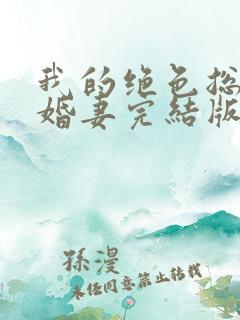 我的绝色总
婚妻完结版
孫漫
未经同意禁止转载